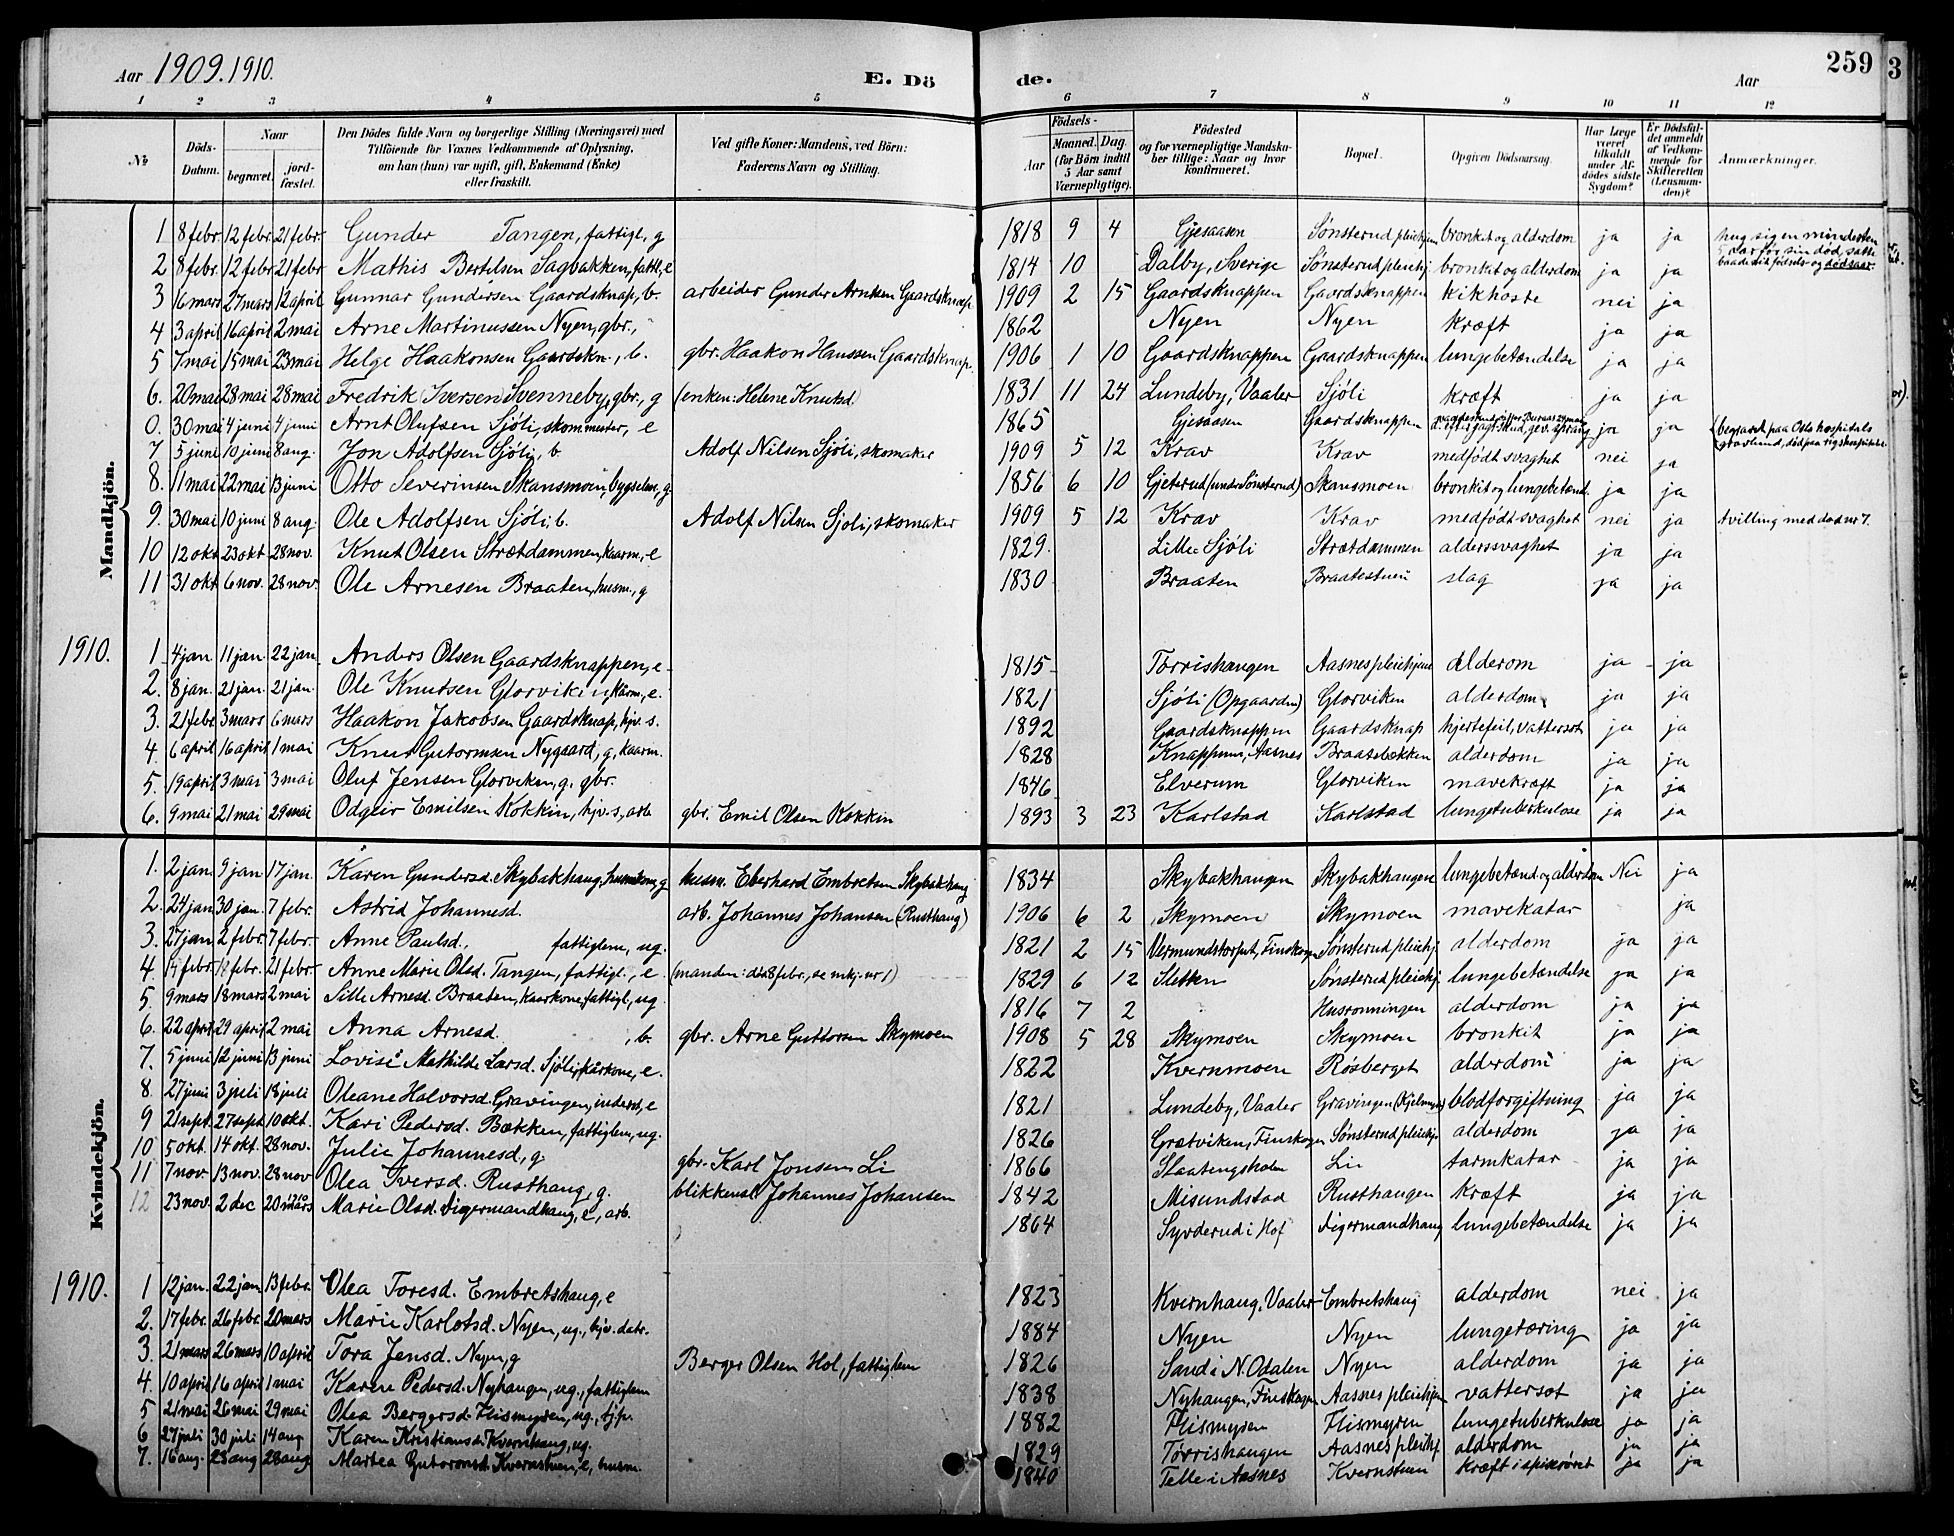 Aar 1909. 1910. E. Dö de. Aar 259 3
1 2 3 4 5 6 7 8 9 10 11 12
№ Döds-Datum. Naar begravet. jordfæstet. Den Dödes fulde Navn og borgerlige Stilling (Næringsvei) med Tilföiende for Voxnes Vedkommende af Oplysning, om han (hun) var ugift, gift, Enkemand (Enke) eller fraskilt. Ved gifte Koner: Mandens, ved Börn: Faderens Navn og Stilling. Födsels- Aar Maaned. Dag. (for Börn indtil 5 Aar samt Værnepligtige). Födested og for værnepligtige Mandskaber tillige: Naar og hvor konfirmeret. Bopæl. Opgiven Dödsaarsag. Har Læge været tilkaldt under Afdödes sidste Sygdom? Er Dödsfaldet anmeldt af Vedkommende for Skifteretten (Lensmanden)? Anmærkninger.
Mandkjön.
1 8 febr. 12 febr. 21 febr. Gunder Tangen, fattigl., g 1818 9 4 Gjesaasen Sønsterud pleiehjem bronkit og alderdom ja ja
2 8 febr. 12 febr. 21 febr. Mathis Bertilsen Sagbakken, fattl, e 1814 10 Dalby, Sverige Sønsterud pleiehj. bronkit og alderdom ja ja
3 6 mars 27 mars 12 april Gunnar Gundersen Gaardsknap, b. arbeider Gunder Arntsen Gaardsknap 1909 2 15 Gaardsknappen Gaardsknappen kikhoste nei ja
4 3 april 16 april 2 mai Arne Martinussen Nyen, gbr., 1862 Nyen Nyen kræft ja ja
5 7 mai 15 mai 23 mai Helge Haakonsen Gaardskn., b. gbr. Haakon Hanssen Gaardsknap. 1906 1 10 Gaardsknappen Gaardsknappen lungebetændelse ja ja
6. 20 mai 28 mai 28 mai Fredrik Iversen Svenneby, gbr., g (enken: Helene Knutsd) 1831 11 24 Lundeby, Vaaler Sjöli kræft ja ja
0. 30 mai 4 juni 4 juni Arnt Olufsen Sjöli, skommster, e 1865 Gjesaasen Gaardsknappen ja ja (begravet paa Oslo hospitals gravlund, död paa rigshospitalet
7 5 juni 10 juni 8 aug. Jon Adolfsen Sjöli, b Adolf Nilsen Sjöli, skomaker 1909 5 12 Krav Krav medfödt svaghet nei ja
8. 11 mai 22 mai 13 juni Otto Severinsen Skansmoen, bygselm, g. 1856 6 10 Gjeterud (under Sönsterud) Skansmoen bronkit og lungebetænd. ja ja
9. 30 mai 10 juni 8 aug. Ole Adolfsen Sjöli, b. Adolf Nilsen Sjöli, skomaker 1909 5 12 Krav Krav medfödt svaghet nei ja tvilling med död nr 7.
10 12 okt 23 okt 28 nov. Knut Olsen Strætdammen, kaarm., e 1829. Lille Sjöli Strætdammen alderssvaghet ja ja
11 31 okt 6 nov. 28 nov. Ole Arnesen Braaten, husm., g 1830 Braaten Braatestuen slag ja ja
1910.
1 4 jan. 11 jan. 22 jan. Anders Olsen Gaardsknappen, e 1815 Törrishaugen Aasnes pleiehjem alderom ja ja
2. 8 jan. 21 jan. 21 jan. Ole Knutsen Glorviken, kårm., e. 1821 Sjöli (Opgaarden) Glorviken alderdom ja ja
3. 21 febr 3 mars 6 mars Haakon Jakobsen Gaardsknap, hjv. s. 1892 Gaardsknappen Gaardsknap hjertefeil, vattersot ja ja
4. 6 april 16 april 1 mai Knut Gutormsen Nygaard, g, kaarm. 1828 Knappen, Aasnes Braatebækken alderdom ja ja
5. 19 april 3 mai 3 mai Oluf Jensen Glorviken, g. gbr. 1846 Elverum Glorviken mavekræft ja ja
6. 9 mai 21 mai 29 mai Odgeir Emilsen Kokkin, hjv. s., arb gbr. Emil Olsen Kokkin 1893 3 23 Karlstad Karlstad lungetuberkulose ja ja
Kvindekjön.
1. 2 jan. 9 jan 17 jan. Karen Gundersd. Skybakhaug, g husm. Eberhard Embretsen Skybakhaug 1834 Skybakhaugen Skybakhaugen lungebetænd. og alderdom Nei ja
2. 24 jan 30 jan. 7 febr. Astrid Johannesd. arb. Johannes Johansen (Rusthaug) 1906 6 2 Skymoen Skymoen mavekatar ja
3. 27 jan 2 febr. 7 febr. Anne Paulsd., fattiglem, ug. 1821 2 15 Vermundstorpet, Finskogen Sønsterud pleiehj. alderdom ja ja
4. 14 febr. 19 febr. 21 febr. Anne Marie Olsd. Tangen, fattigl., e. (manden: död 8 febr., se mkj. nr 1) 1829 6 12 Sletten Sönsterud pleiehj. lungebetændelse ja ja
5. 9 mars 18 mars 2 mai Sille Arnesd. Braaten, kaarkone, fattigl, ug. 1816 7 2 Husronningen alderdom ja ja
6. 22 april 29 april 2 mai Anna Arnesd. , b. gbr. Arne Guttormsen Skymoen 1908 5 28 Skymoen Skymoen bronkit ja ja
7. 5 juni 12 juni 13 juni Lovise Mathilde Larsd. Sjöli, kårkone, e. 1822 Kvernmoen Rösberget alderdom ja ja
8 27 juni 3 juli 18 juli Oleane Halvorsd. Gravingen, inderst, e 1821 Lundeby, Vaaler Gravingen blodforgiftning ja ja
9 21 sept. 27 sept 10 okt. Kari Pedersd. Bækken, fattiglem, ug. 1826 Grætviken, Finskogen Sönsterud pleiehj. alderdom ja ja
10 5 okt. 14 okt. 28 nov. Julie Johannesd., g. gbr. Karl Jonsen Li 1866 Slaatengsholen Lie tarmkatar ja ja
11 7 nov. 13 nov. 28 nov Olea Iversd. Rusthaug, g. blikkensl Johannes Johansen 1842 Misundstad Rusthaugen kræft ja ja
12 23 nov. 2 dec 20 mars 1910 Marie Olsd. Digermandhaug, e, arb. 1864 Syverud i Hof Digermandhaug lungebetændelse ja ja
1910.
1 12 jan. 22 jan. 13 febr. Olea Toresd. Embretshaug, e 1823 Kvernhaug, Vaaler Embretshaug alderdom nei ja
2. 17 febr. 26 febr. 20 mars Marie Karlotsd. Nyen, ug., hjv. datr. 1884 Nyen Nyen lungetæring ja ja
3. 21 mars 26 mars 10 april Tora Jensd. Nyen, g Berger Olsen Hol, fattiglem 1826 Sand i N. Odalen Nyen alderdom ja ja
4. 10 april 16 april 1 mai Karen Pedersd. Nyhaugen, ug., fattiglem 1838 Nyhaugen, Finskogen Aasnes pleiehjem vattersot ja ja
5 21 mai 26 mai 29 mai Olea Bergersd. Flismyren, ug., tj.p. 1882 Flismyren Flismyren lungetuberkulose ja ja
6 27 juli 30 juli 14 aug Karen Kristiansd. Kvernhaug, ug. 1829 Törrishaugen Aasnes pleiehj. alderdom ja ja
7. 16 aug. 23 aug 28 aug Martea Gutormsd. Kvernstuen, e, husm. 1840 Telle i Aasnes Kvernstuen kræft i spiserøret ja ja